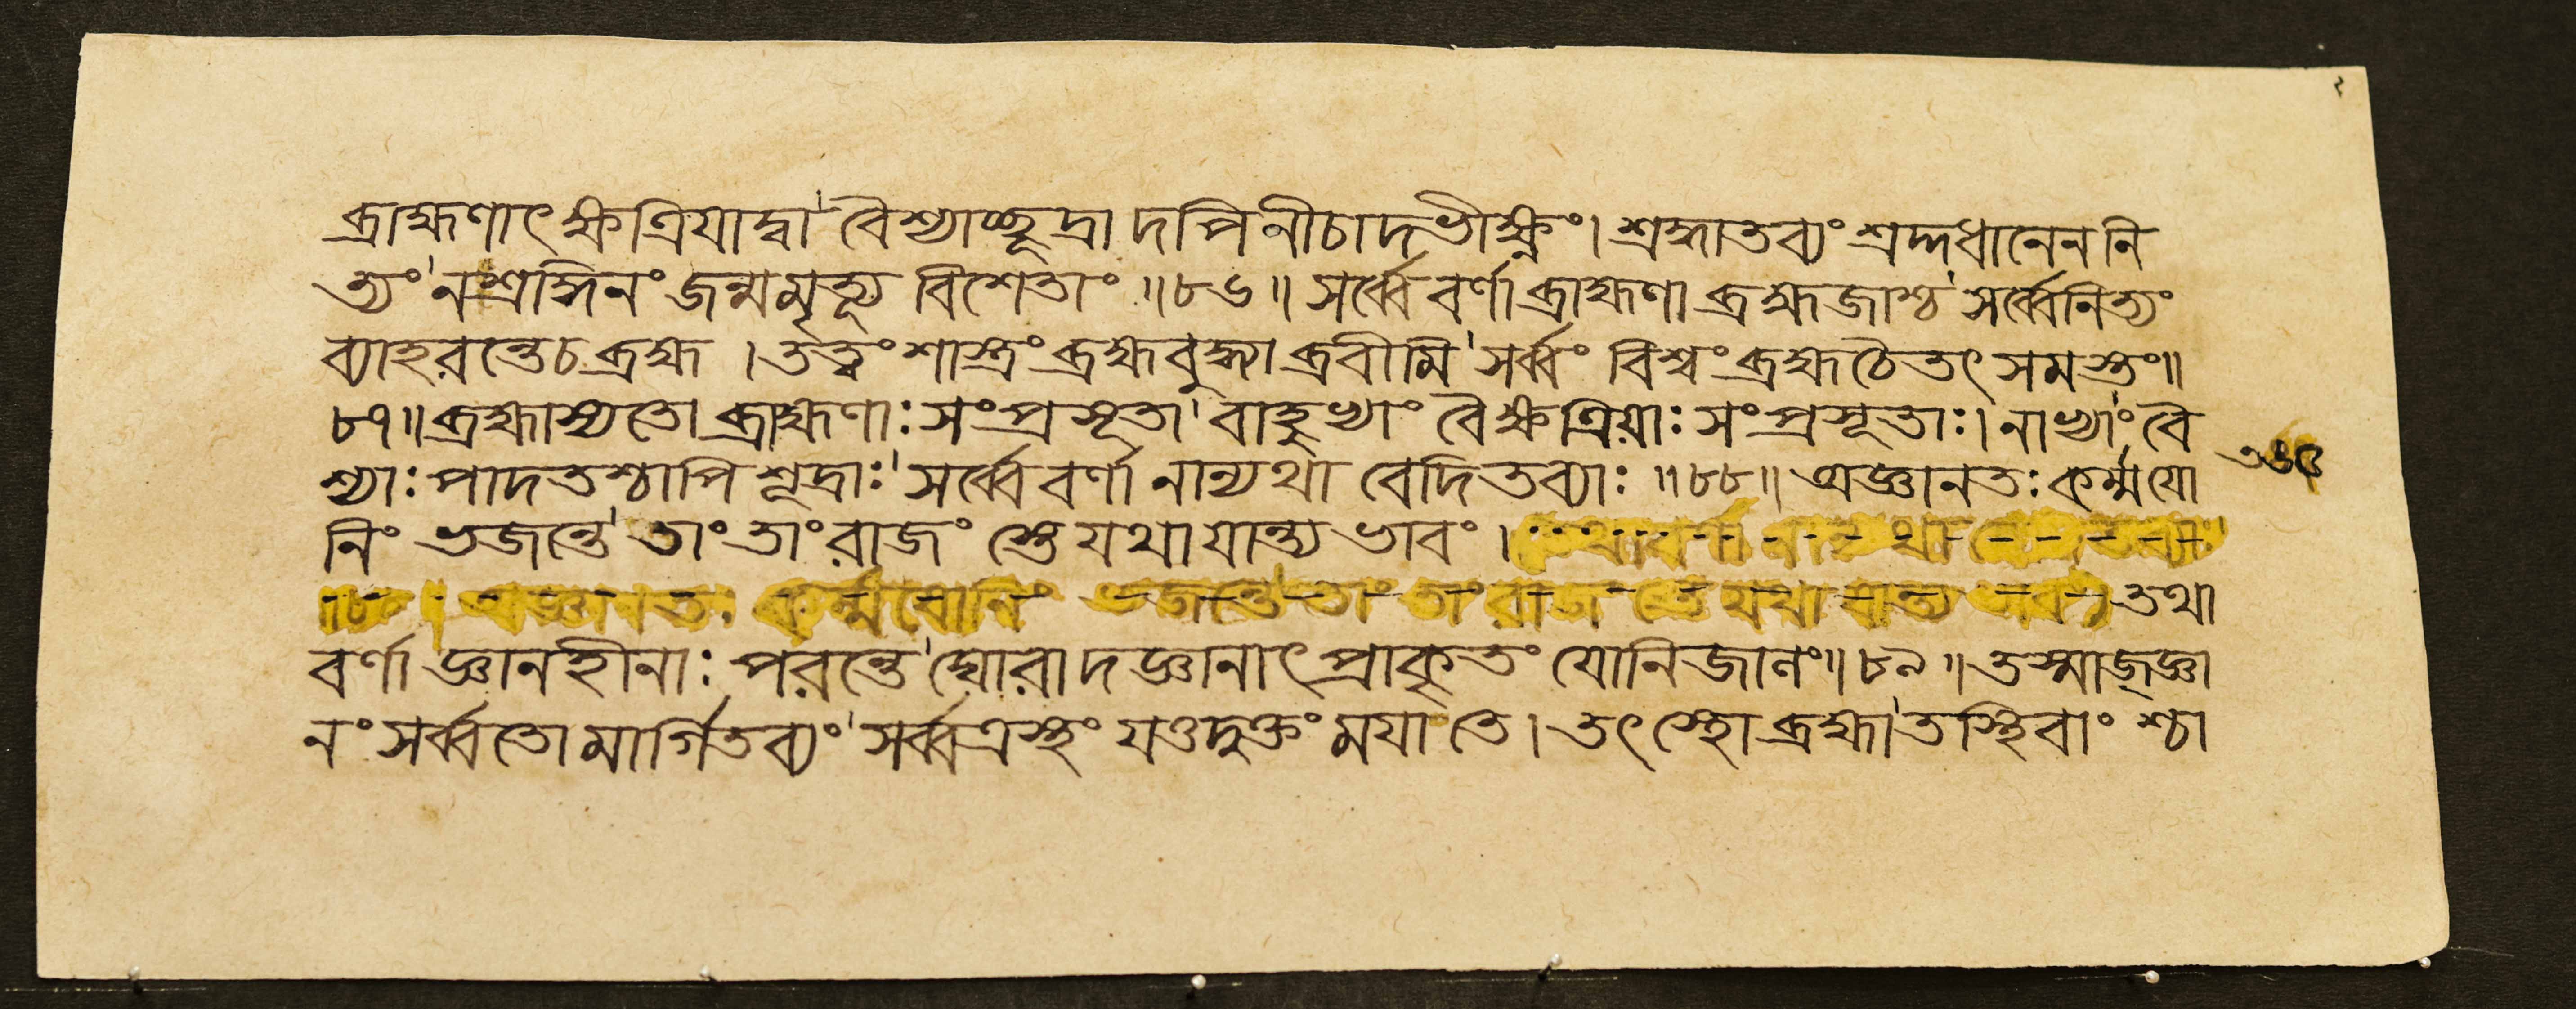 ব্রাহ্মণাৎ ক্ষত্রিযাদ্বা' বৈশ্যাচ্ছূদ্রা দপি নীচাদভীক্ষ্নং। শ্রদ্ধাতব্যং শ্রদ্দধানেন নি
ত্যং' ন শ্রদ্ধিনং জন্মমৃত্যূ বিশেতাং ॥৮৬॥ সর্ব্বে বর্ণা ব্রাহ্মণা ব্রহ্মজাশ্চ' সর্ব্বে নিত্যং
ব্যাহরন্তে চ ব্রহ্ম । তত্ত্বং শাস্ত্রং ব্রহ্মবুদ্ধ্যা ব্রবীমি' সর্ব্বং বিশ্বং ব্রহ্ম চৈতৎ সমস্তং॥
৮৭॥ ব্রহ্মাস্যতো ব্রাহ্মণাঃ সংপ্রসূতা' বাহুভ্যাং বৈ ক্ষত্রিয়াঃ সংপ্রসূতাঃ। নাভ্যাং' বৈ
শ্যাঃ পাদতশ্চাপি শূদ্রাঃ' সর্ব্বে বর্ণা নান্যথা বেদিতব্যাঃ ॥৮৮॥ অজ্ঞানতঃ কর্ম্মযো
নিং ভজন্তে' তাং তাং রাজং স্তে যথা যান্ত্যভাবং । তথা বর্ণা নান্যথা বেদিতব্যাঃ
॥৮৮॥ অজ্ঞানতঃ কর্ম্মযোনিং ভজন্তে' তাং তাং রাজং স্তে যথা যান্ত্যভাবং। তথা
বর্ণা জ্ঞানহীনাঃ পরন্তে' ঘোরাদজ্ঞানাৎ প্রাকৃতং যোনিজানং॥৮৯॥ তস্মাজ্জ্ঞা
নং সর্ব্বতো মার্গিতব্যং' সর্ব্বত্রস্থং যওদুক্তং ময়া তে। তৎস্থো ব্রহ্মা' তস্থিবাং শ্চা